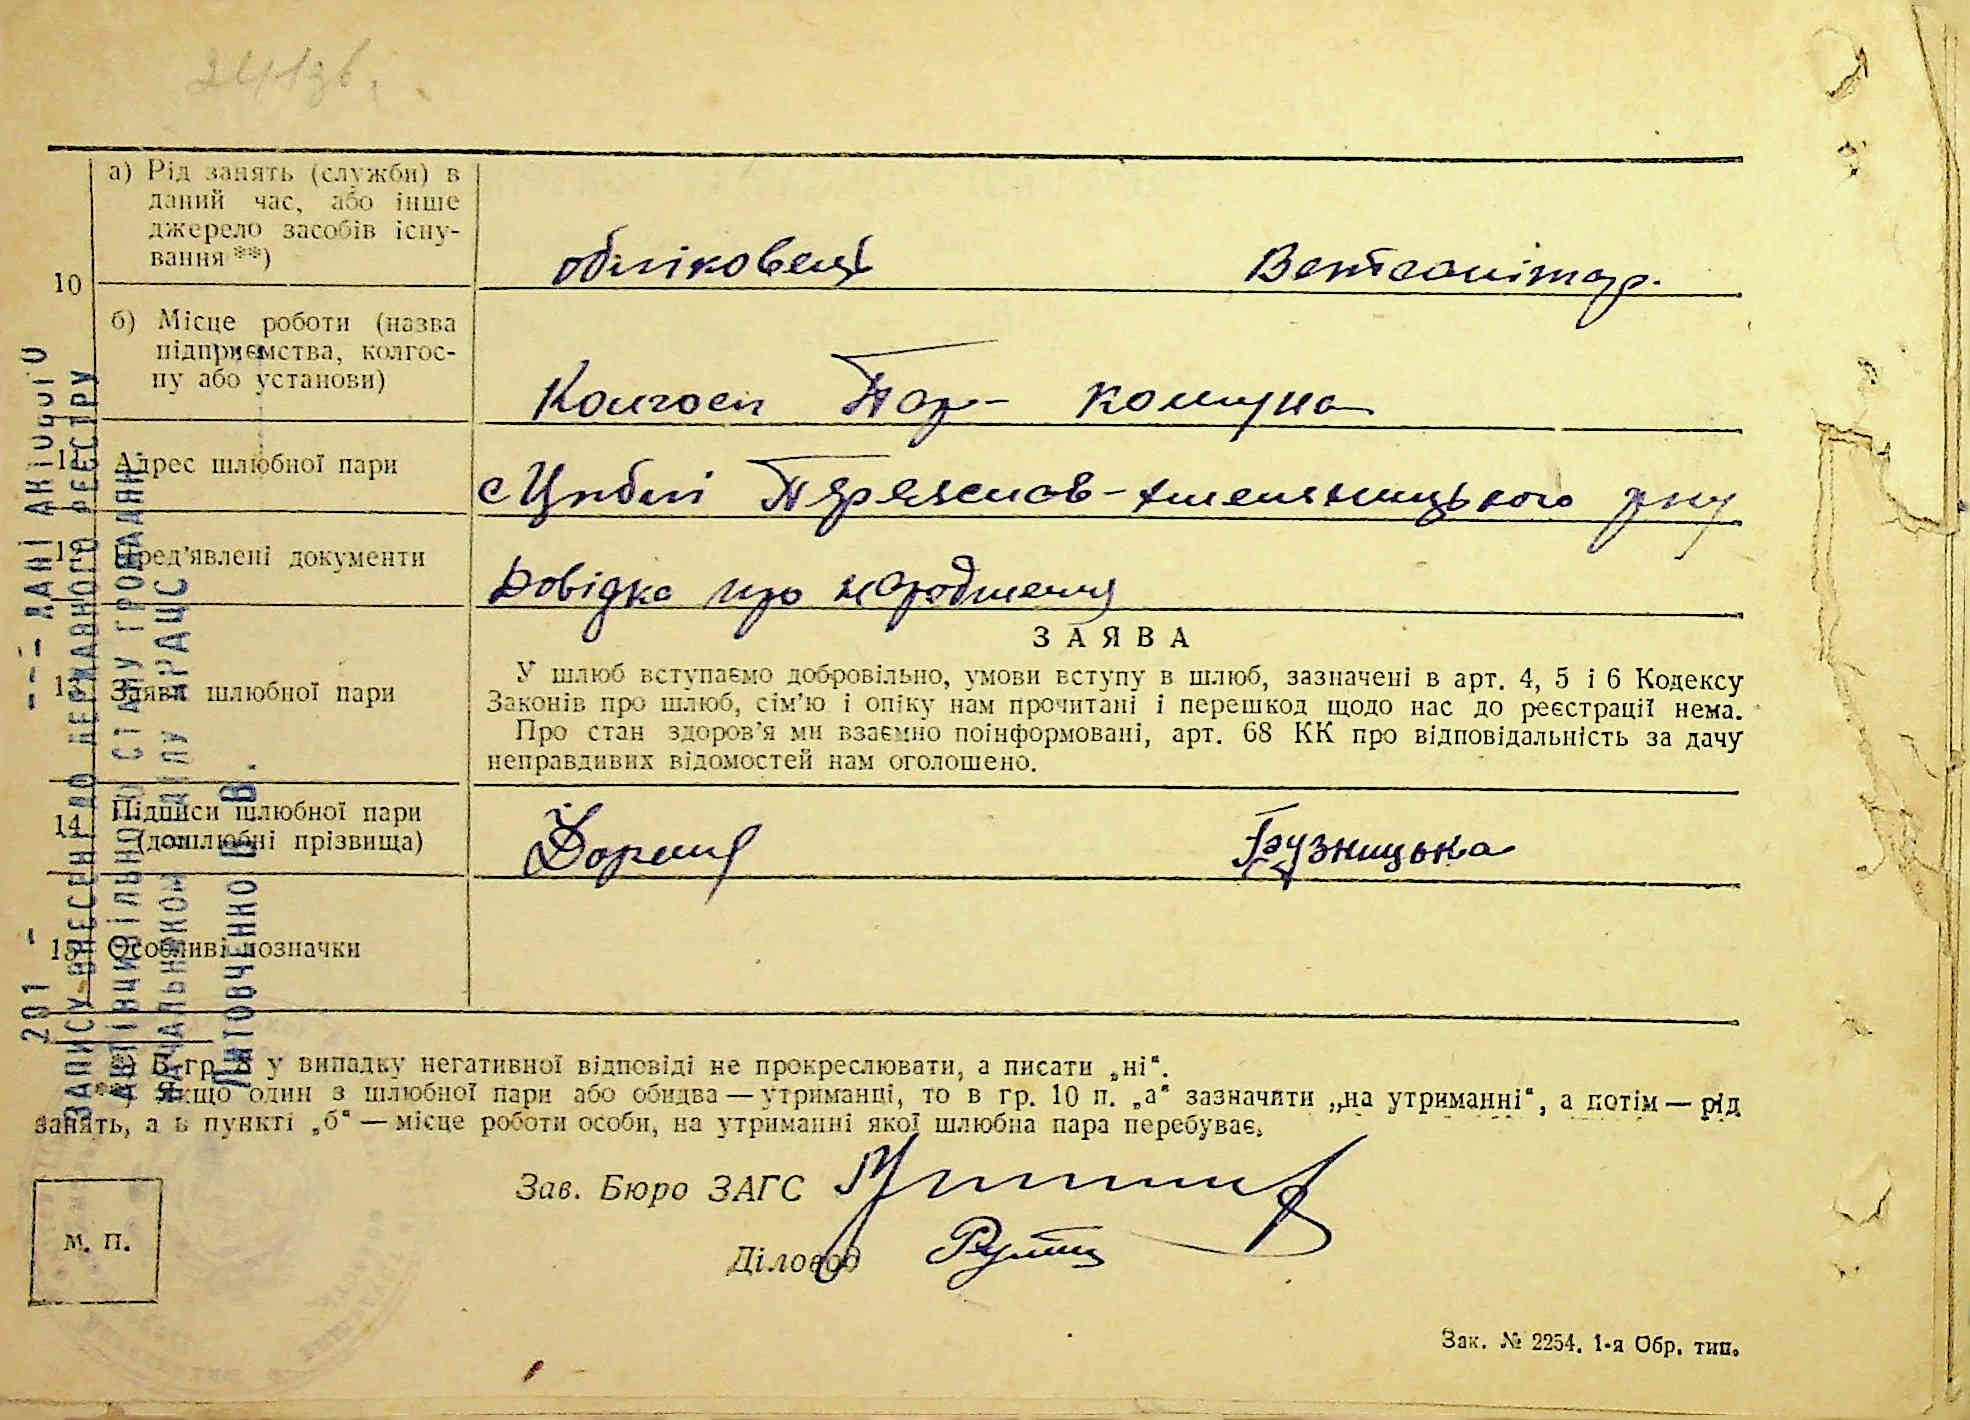 а) Рід занять (служби) в
даний час, або інше
джерело засобів існу-
вання **)
обліковець Ветсанітар.
10
б) Місце роботи (назва
підприємства, колгос-
пу або установи)
Колгосп Пар- комуна
11 Адрес шлюбної пари
с Циблі Переяслав-Хмельницького р-ну
12 Пред'явлені документи
Довідка про народження
13 Заява шлюбної пари
ЗАЯВА
У шлюб вступаємо добровільно, умови вступу в шлюб, зазначені в арт. 4, 5 і 6 Кодексу
Законів про шлюб, сім'ю і опіку нам прочитані і перешкод щодо нас до реєстрації нема.
Про стан здоров'я ми взаємно поінформовані, арт. 68 КК про відповідальність за дачу
неправдивих відомостей нам оголошено.
14 Підписи шлюбної пари
(дошлюбні прізвища)
Грузницька
15 Особливі позначки
*) В гр. 8 у випадку негативної відповіді не прокреслювати, а писати „ні“.
**) Якщо один з шлюбної пари або обидва — утриманці, то в гр. 10 п. „а“ зазначити „на утриманні“, а потім — рід
занять, а в пункті „б“ — місце роботи особи, на утриманні якої шлюбна пара перебуває.
Зав. Бюро ЗАГС
Діловод
М. П.
Зак. № 2254. 1-я Обр. тип.
201 - --- ДАНІ АКТОВОГО
ЗАПИСУ ВНЕСЕНІ ДО ДЕРЖАВНОГО РЕЄСТРУ
АКТІВ ЦИВІЛЬНОГО СТАНУ ГРОМАДЯН
НАЧАЛЬНИКОМ ВІДДІЛУ ДРАЦС
ЛИТОВЧЕНКО В. В.